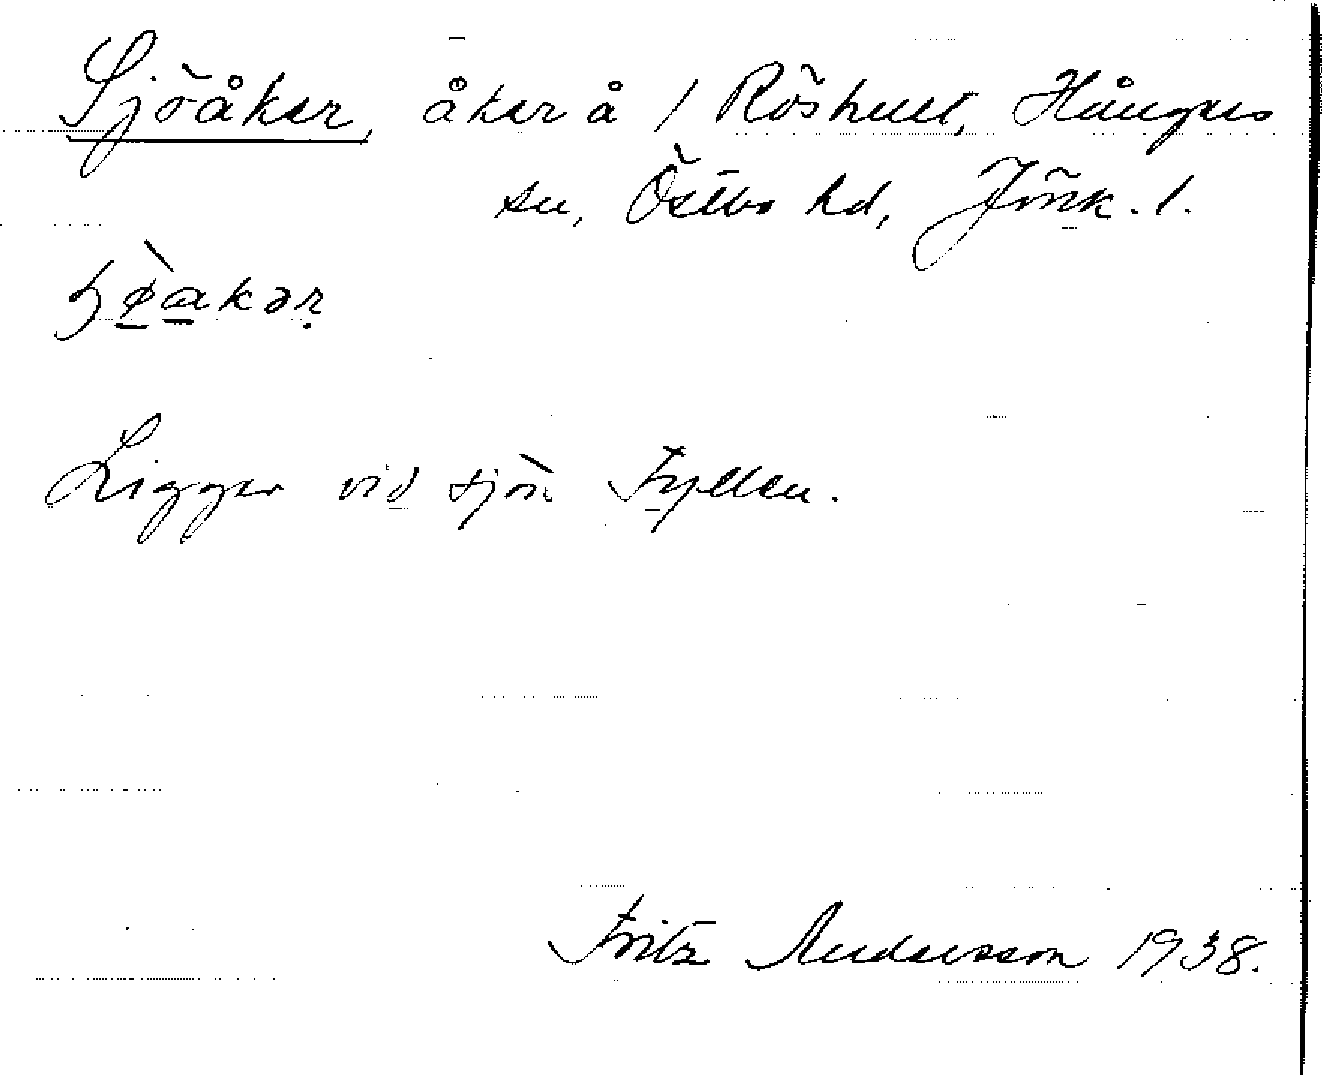 Sjöåker, åker å / Röshult, Hångers
sn, Östbo hd, Jönk. l.
ɧø̀akər
Ligger vid sjön Fyllen.
Fritz Andersson 1938.